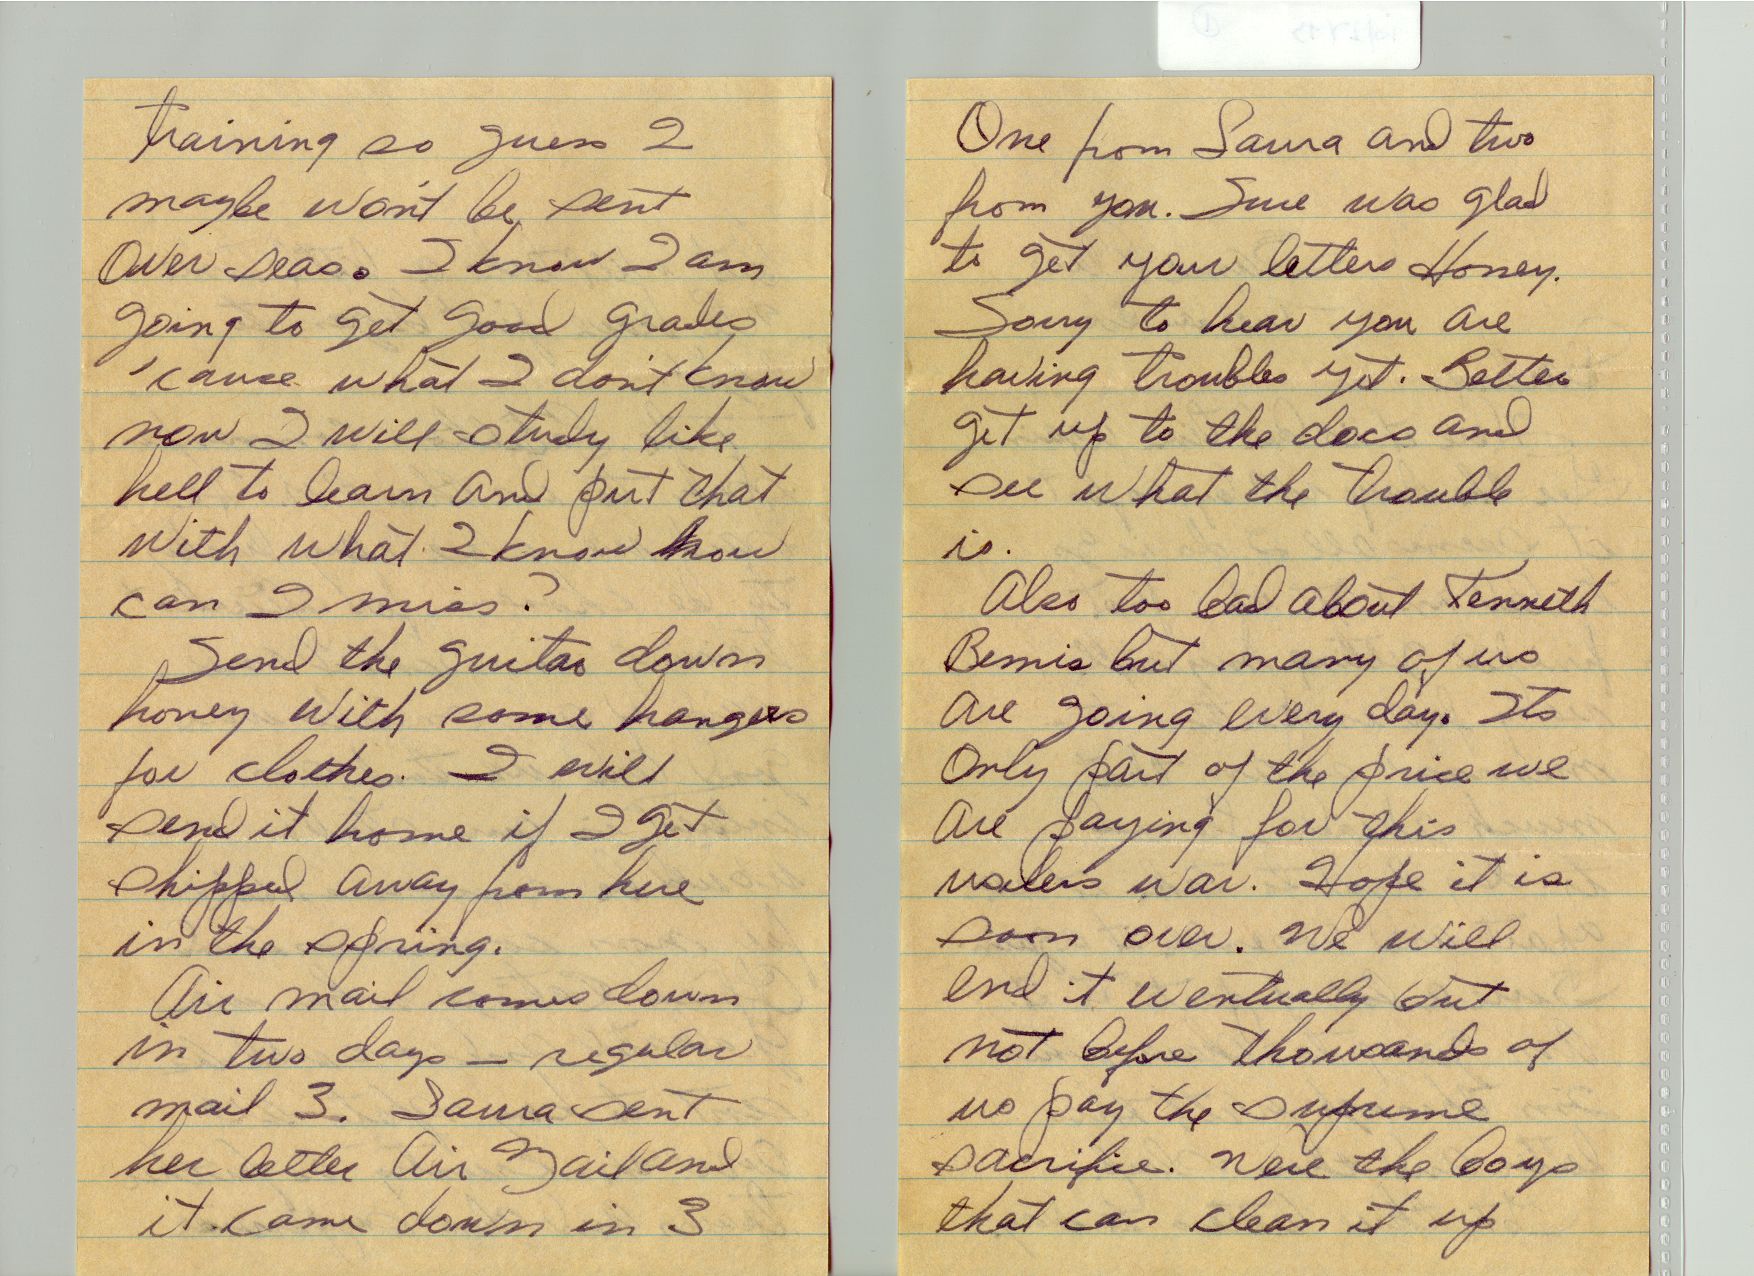 training so guess I
maybe won't be sent
over seas. I know I am
going to get good grades
'cause what I don't know
now I will study like
hell to learn and put that
with what I know how
can I miss?
Send the guitar down
honey with some hangers
for clothes. I will
send it home if I get
shipped away from here
in the spring.
Air mail comes down
in two days – regular
mail 3. Laura sent
her letter Air Mail and
it came down in 3
One from Laura and two
from you. Sure was glad
to get your letters Honey.
Sorry to hear you are
having troubles yet. Better
get up to the docs and
see what the trouble
is.
Also too bad about Kenneth
Bemis but many of us
are going every day. Its
only part of the price we
are paying for this
useless war. Hope it is
soon over. We will
end it eventually but
not before thousands of
us pay the supreme
sacrifice. Were the boys
that can clean it up